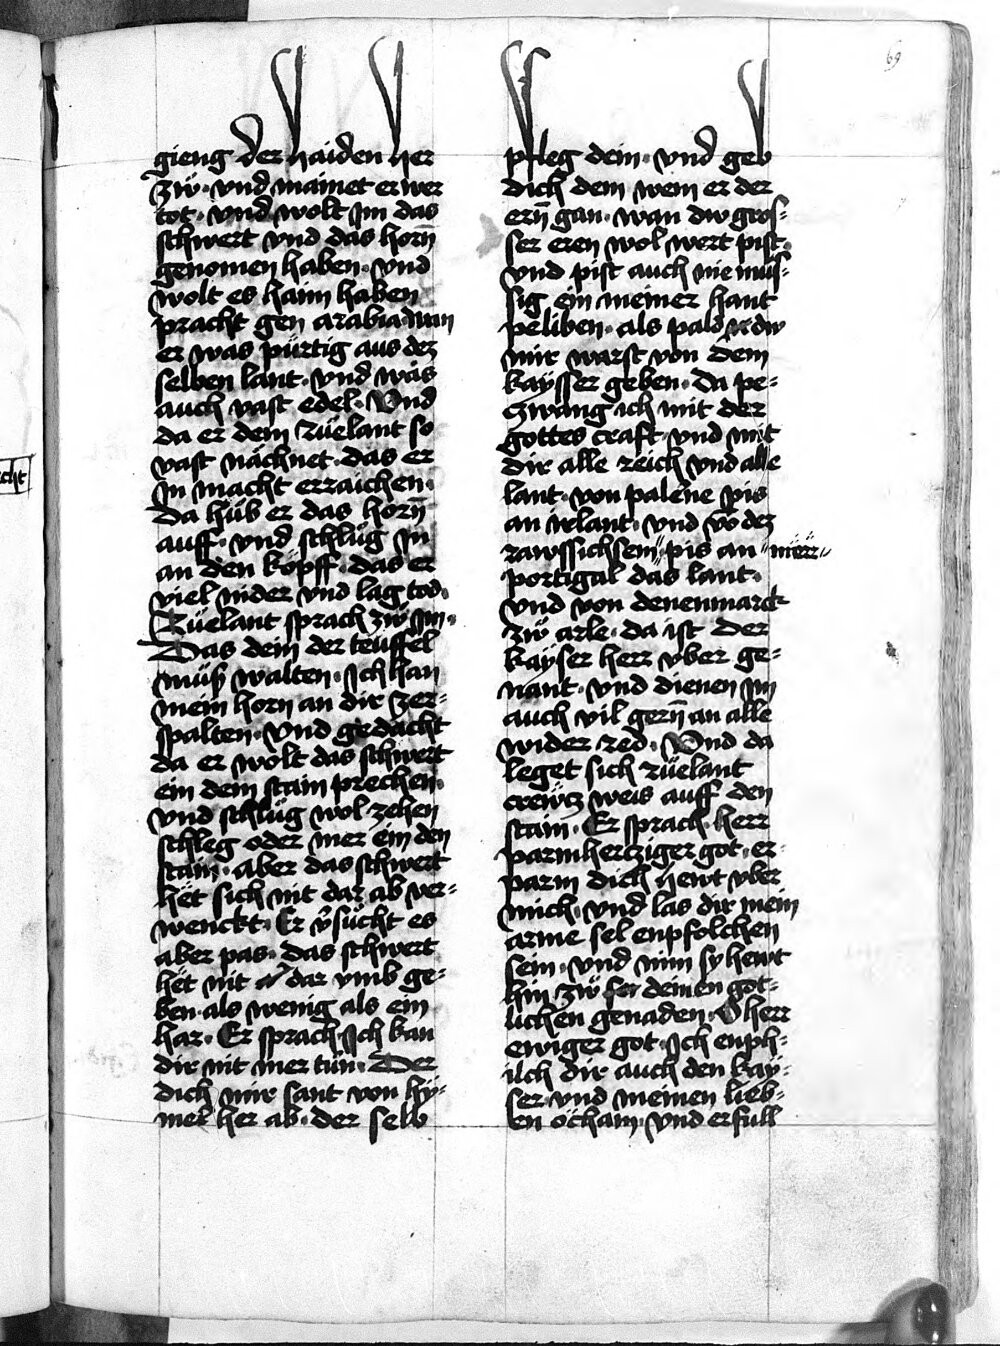 69
gieng der haiden her
zw · vnd mainet er wer
tot · vnd wolt jm das
schwert vnd das horn̄
genomen haben · vnd
wolt es haim haben
pracht gen arabia · wan
er was pürtig aus dez
selben lant · vnd was
auch vast edel · Vnd
da er dem Rüelant so
vast nächnet · das er
jn macht erraichen ·
Da hüb er das horn̄
auff · vnd schlüg jn
an den köpff · das er
viel nider vnd lag tod ·
Rüelant sprach zw jm ·
Das dein der teuffel
müß walten · jch han
mein horn an dir zer-
spalten · Vnd gedacht
da er wolt das schwert
ein dem stain prechen ·
vnd schlüg wol zehen
schleg oder mer ein den
stain · aber das schwert
het sich nit dar ab ver-
wenckt · Er v̄sücht es
aber pas · das schwert
het nit dar vmb ge-
ben · als wenig als ein
har · Er sprach jch kan
dir nit mer tün · Der
dich mir sant von hy-
mel her ab · der selb
pfleg dein · vnd geb
dich dem wem er der
ern̄ gan · wan dw gros-
ser eren wol wert pist ·
vnd pist auch nie müs-
sig ein meiner hant
peliben · als pald dw
mir warst von dem
kaysser geben · da pe-
zwang ich mit der
gottes craft · vnd mit
dir alle reich vnd alle
lant · von palene pis
an irlant · vnd vō dez
rawssichsem pis an mërr
portigal das lant ·
vnd von denenmarck
zw arle · da ist der
kayser herr vber ge-
nant · vnd dienen jm
auch vil gern̄ an alle
wider red · Vnd da
leget sich rüelant
crewcz weis auff den
stain · Er sprach herr
parmhercziger got · er-
parm dich hewt vber
mich · vnd las dir mein
arme sel enpfolchen
sein · vnd nim sy hewt
hin zw deinen göt-
lichen genaden · O herr
ewiger got · jch enph-
ilch dir auch den kay-
ser · vnd meinen lieb-
en öcham · vnd erfull